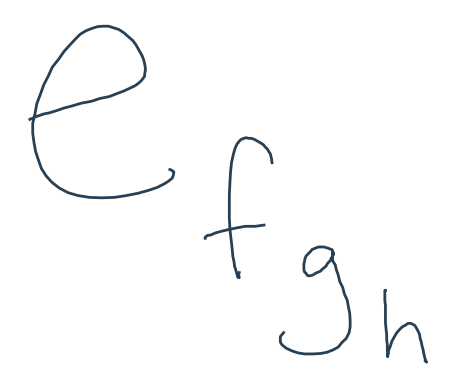 e
f
g
h